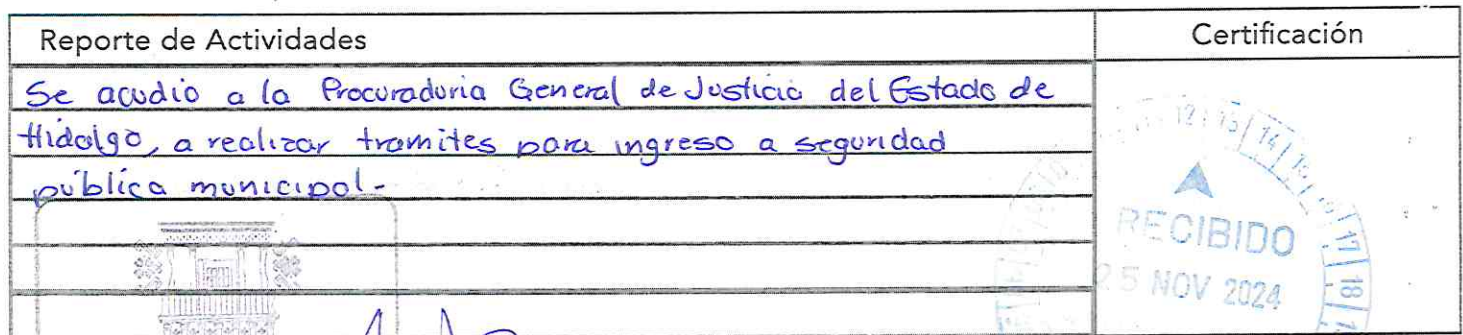 Reporte de Actividades
Certificación
Se acudio a la Procuraduria General de Justicia del Estado de
Hidalgo, a realizar tramites para ingreso a seguridad
pública municipal.
12 13 14
17 18
RECIBIDO
25 NOV 2024